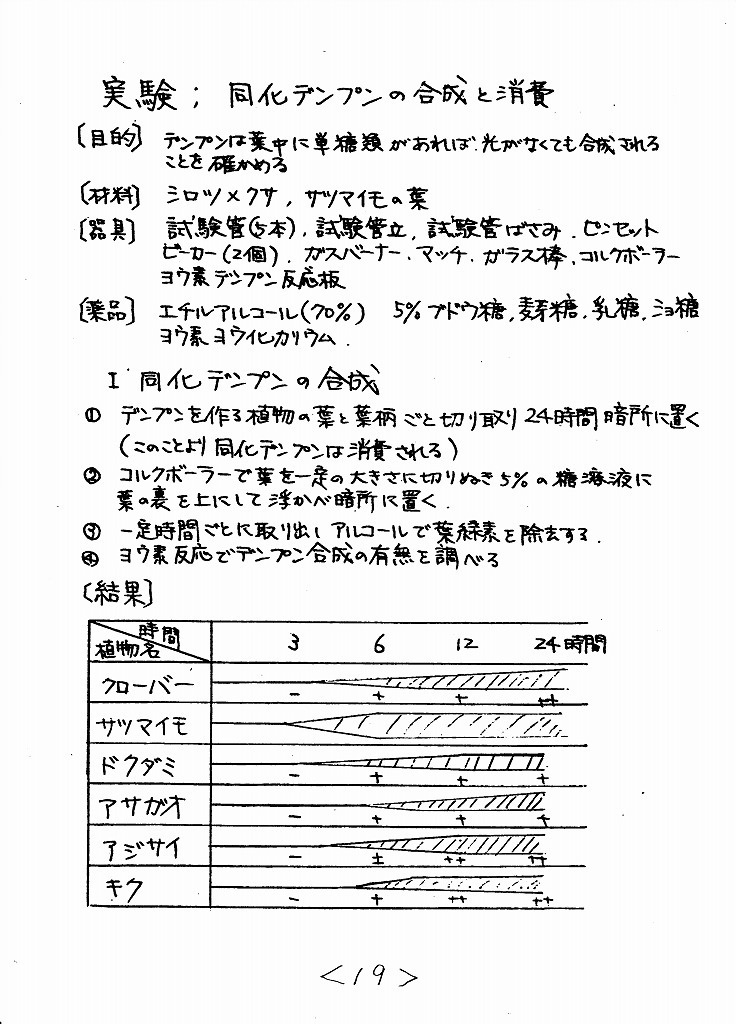 実験； 同化デンプンの合成と消費
〔目的〕 デンプンは葉中に単糖類があれば、光がなくても合成される
ことを確かめる
〔材料〕 シロツメクサ，サツマイモの葉
〔器具〕 試験管(5本)，試験管立，試験管ばさみ．ピンセット
ビーカー(2個)．ガスバーナー．マッチ．ガラス棒，コルクボーラー
ヨウ素デンプン反応板
〔薬品〕 エチルアルコール(70%) 5%ブドウ糖，麦芽糖，乳糖，ショ糖
ヨウ素ヨウ化カリウム．
I 同化デンプンの合成
① デンプンを作る植物の葉を葉柄ごと切り取り24時間暗所に置く
(このことより同化デンプンは消費される)
② コルクボーラーで葉を一定の大きさに切りぬき5%の糖溶液に
葉の裏を上にして浮かべ暗所に置く．
③ 一定時間ごとに取り出しアルコールで葉緑素を除去する．
④ ヨウ素反応でデンプン合成の有無を調べる
〔結果〕
時間
植物名 3 6 12 24時間
クローバー − + + ++
サツマイモ
ドクダミ − + + +
アサガオ − + + +
アジサイ − ± ++ ++
キク − + ++ ++
<19>